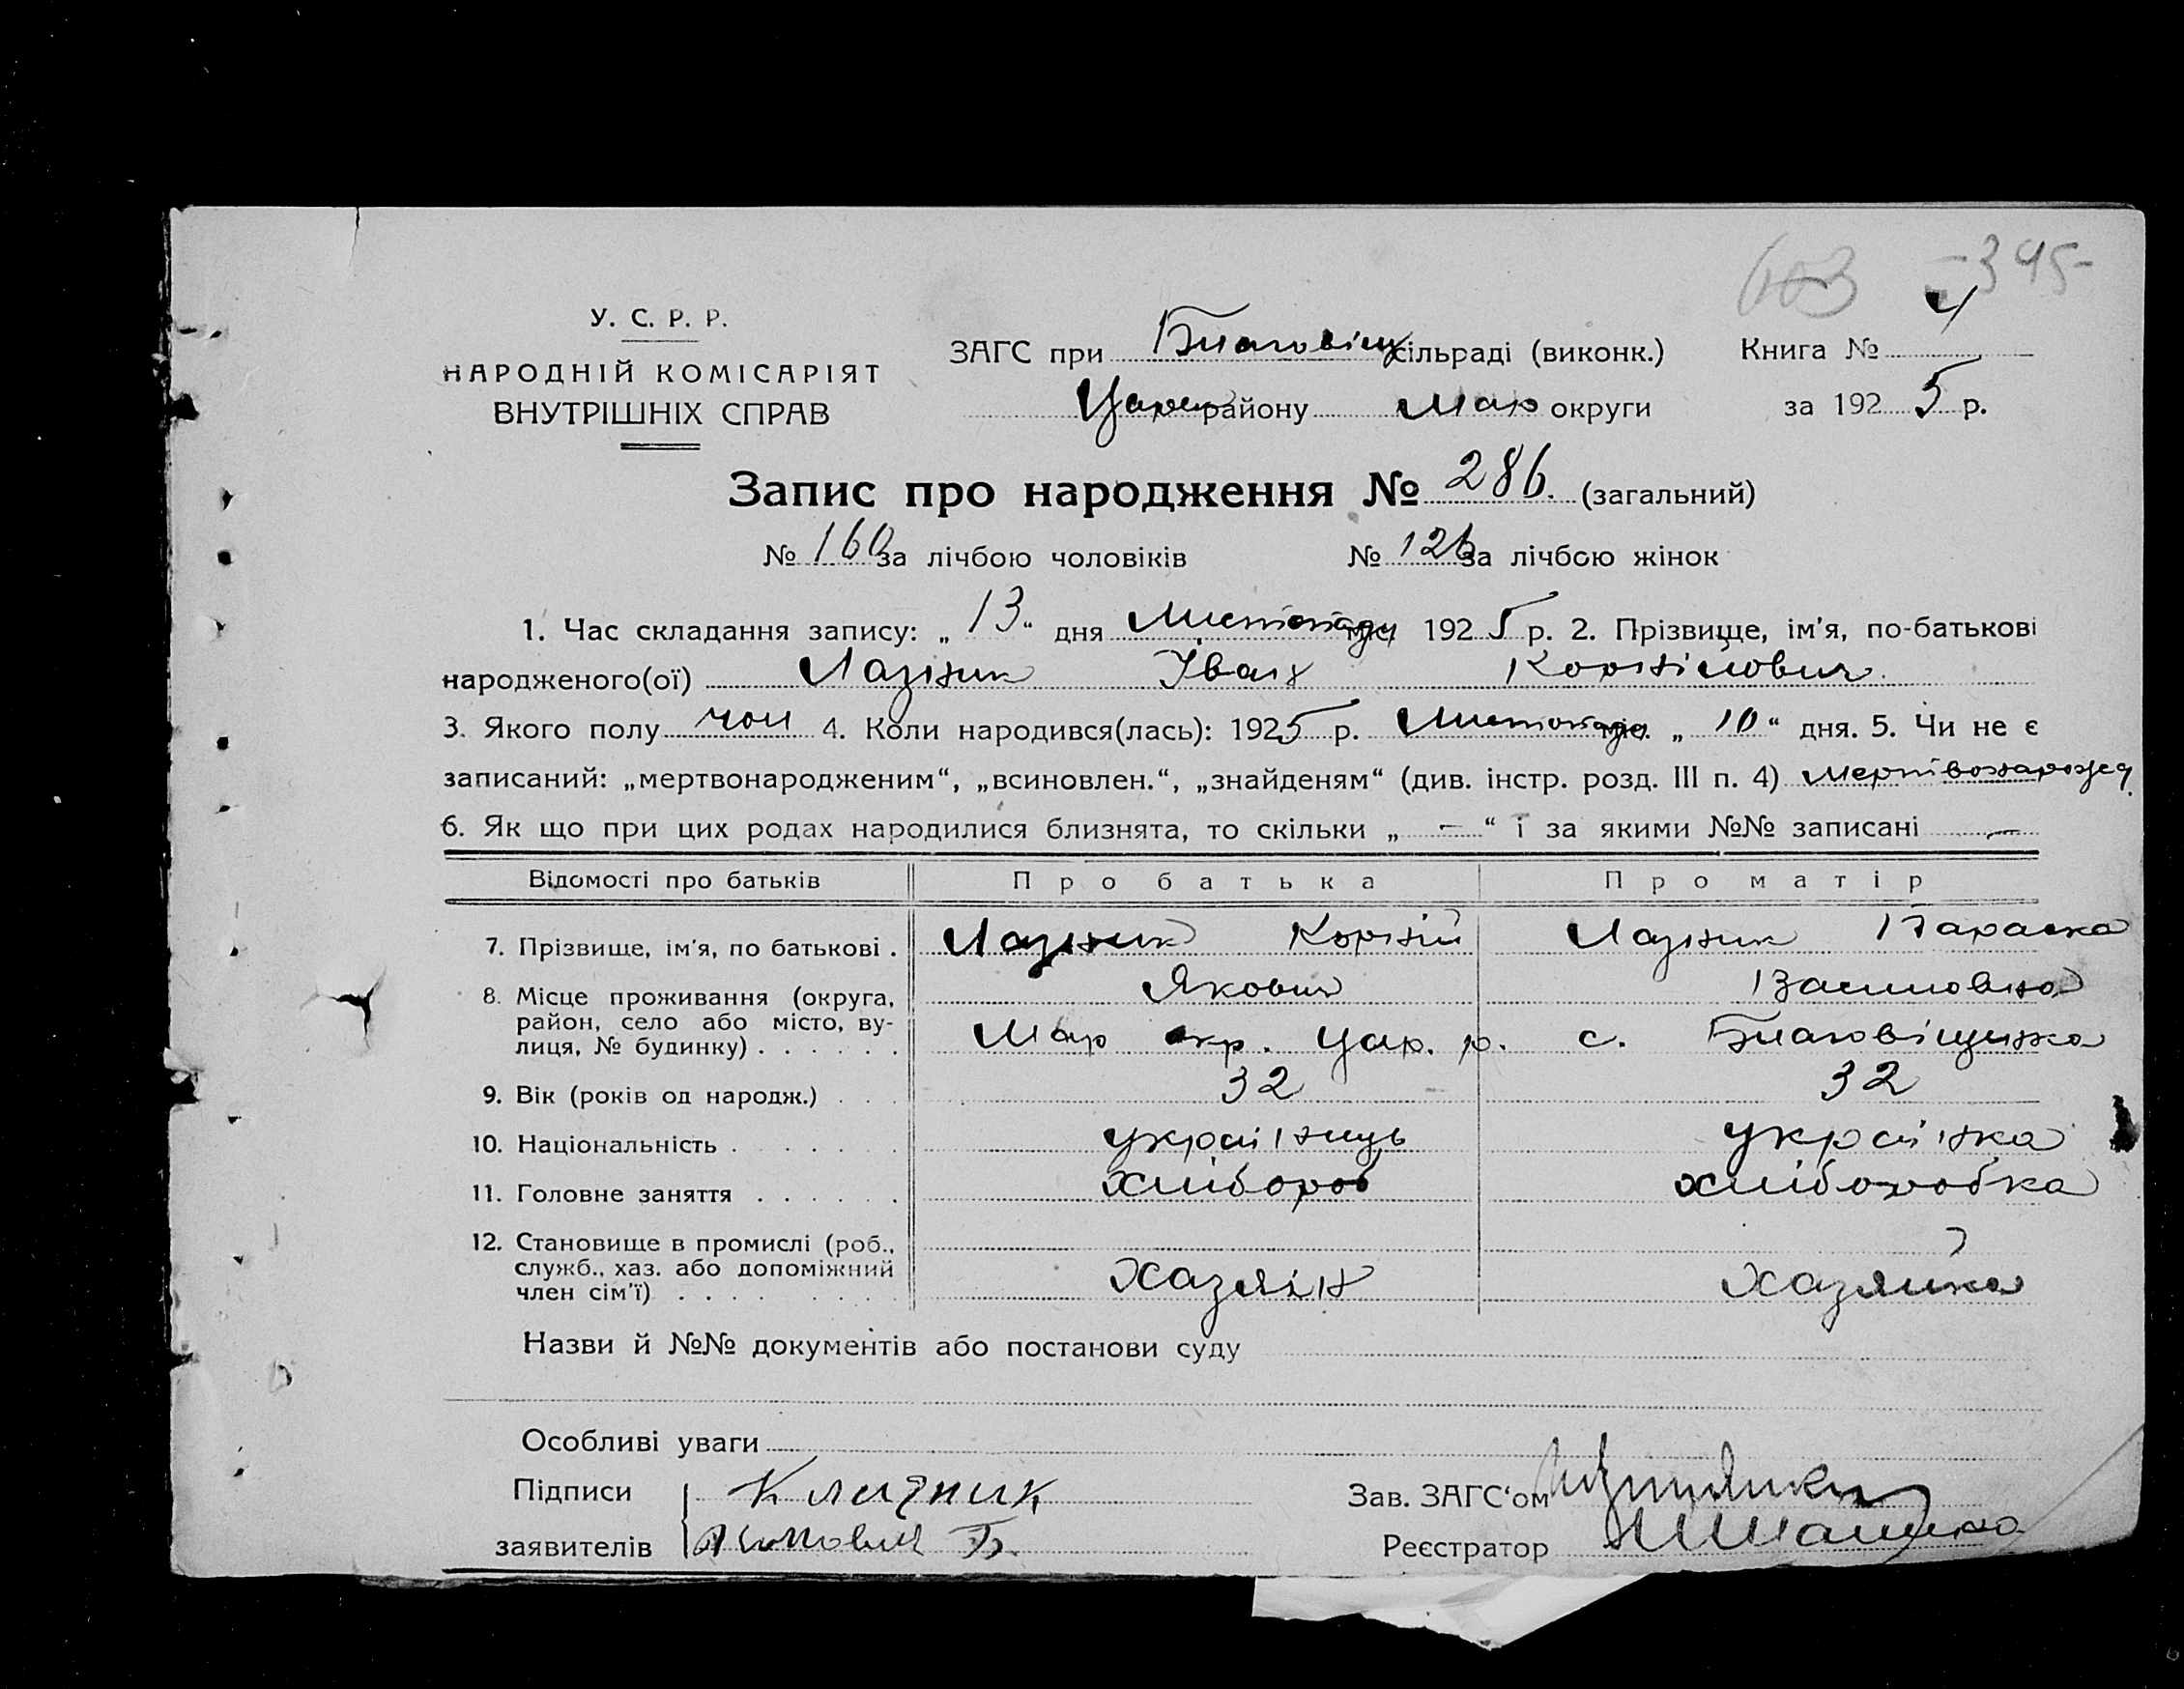 603 -395-
У. С. Р. Р.
НАРОДНІЙ КОМІСАРІЯТ
ВНУТРІШНІХ СПРАВ
ЗАГС при Благовіщ сільраді (виконк.) Книга № 4
Царек району Мар округи за 1925 р.
Запис про народження № 286. (загальний)
№ 160 за лічбою чоловіків № 126 за лічбою жінок
1. Час складання запису: „13“ дня Листопаду міс. 1925 р. 2. Прізвище, ім’я, по-батькові
народженого(ої) Лазник Іван Корнійович
3. Якого полу чол 4. Коли народився(лась): 1925 р. Листопада міс. „10“ дня. 5. Чи не є
записаний: „мертвонародженим“, „всиновлен.“, „знайденям“ (див. інстр. розд. III п. 4) мертвонарожд.
6. Як що при цих родах народилися близнята, то скільки „ — “ і за якими №№ записані —
Відомості про батьків Про батька Про матір
7. Прізвище, ім’я, по батькові . Лазник Корній Лазник Параска
Якович Василовна
8. Місце проживання (округа,
район, село або місто, ву-
лиця, № будинку) . . . . . . Мар окр. Цар. р. с. Благовіщинка
9. Вік (років од народж.) . . . 32 32
10. Національність . . . . . . . українець українка
11. Головне заняття . . . . . . хлібороб хліборобка
12. Становище в промислі (роб.,
служб., хаз. або допоміжний
член сім’ї) . . . . . . . . Хазяїн Хазяйка
Назви й №№ документів або постанови суду
Особливі уваги
Підписи К Лазник
заявителів Б.
Зав. ЗАГС‘ом
Реєстратор